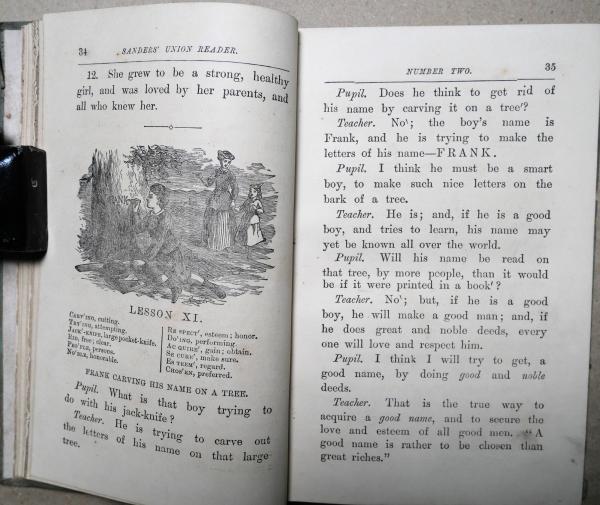 34 SANDERS' UNION READER.
12. She grew to be a strong, healthy
girl, and was loved by her parents, and
all who knew her.
FRANK
LESSON XI.
CARV'ING, cutting.
TRY'ING, attempting.
JACK'-KNIFE, large pocket-knife.
RID, free; clear.
PEO'PLE, persons.
NO'BLE, honorable.
RE SPECT', esteem; honor.
DO'ING, performing.
AC QUIRE', gain; obtain.
SE CURE', make sure.
ES TEEM', regard.
CHOS'EN, preferred.
FRANK CARVING HIS NAME ON A TREE.
Pupil. What is that boy trying to
do with his jack-knife?
Teacher. He is trying to carve out
the letters of his name on that large
tree.
NUMBER TWO. 35
Pupil. Does he think to get rid of
his name by carving it on a tree'?
Teacher. No`; the boy's name is
Frank, and he is trying to make the
letters of his name—FRANK.
Pupil. I think he must be a smart
boy, to make such nice letters on the
bark of a tree.
Teacher. He is; and, if he is a good
boy, and tries to learn, his name may
yet be known all over the world.
Pupil. Will his name be read on
that tree, by more people, than it would
be if it were printed in a book'?
Teacher. No`; but, if he is a good
boy, he will make a good man; and, if
he does great and noble deeds, every
one will love and respect him.
Pupil. I think I will try to get, a
good name, by doing good and noble
deeds.
Teacher. That is the true way to
acquire a good name, and to secure the
love and esteem of all good men. "A
good name is rather to be chosen than
great riches."